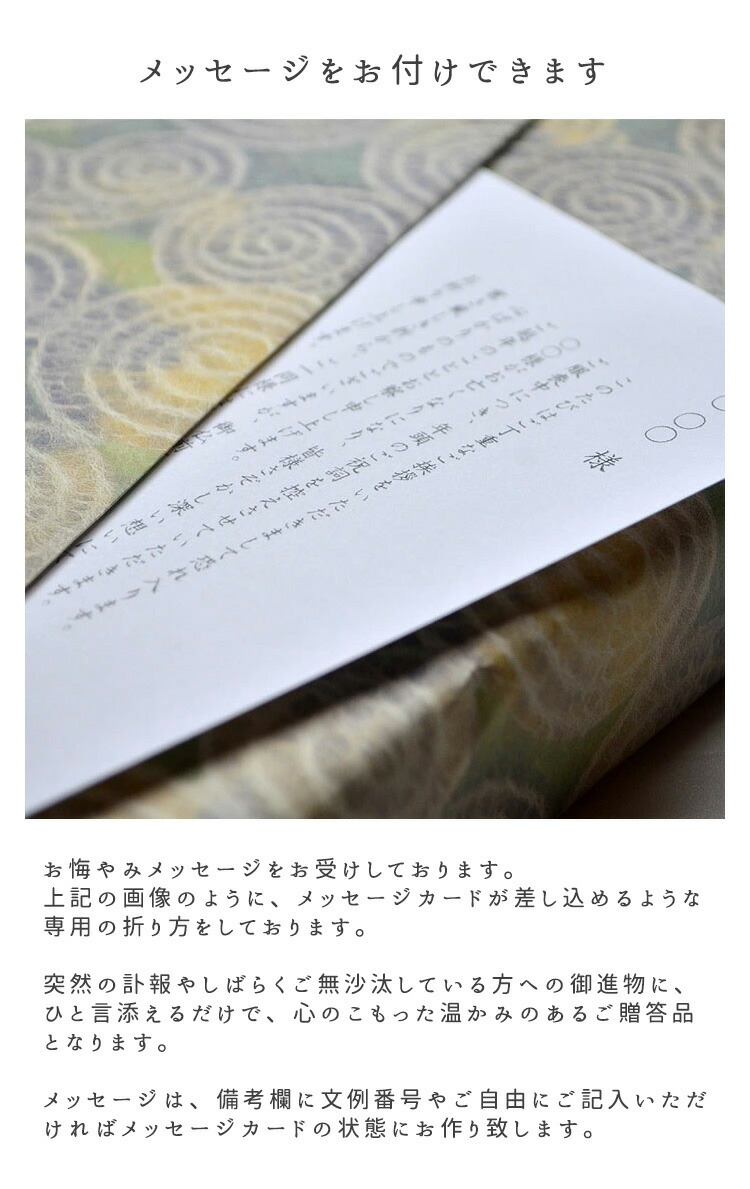 メッセージをお付けできます
○○○
様
このたびはご丁重なご挨拶をいただきまして恐れ入ります。
ご服喪中につき、年頭のご祝詞を控えさせていただきます。
○○様がお亡くなりになり、皆様さぞかし深い想いに
ご越年のこととお察し申し上げます。
心ばかりのものでございますが、御仏前
お悔やみメッセージをお受けしております。
上記の画像のように、メッセージカードが差し込めるような
専用の折り方をしております。
突然の訃報やしばらくご無沙汰している方への御進物に、
ひと言添えるだけで、心のこもった温かみのあるご贈答品
となります。
メッセージは、備考欄に文例番号やご自由にご記入いただ
ければメッセージカードの状態にお作り致します。